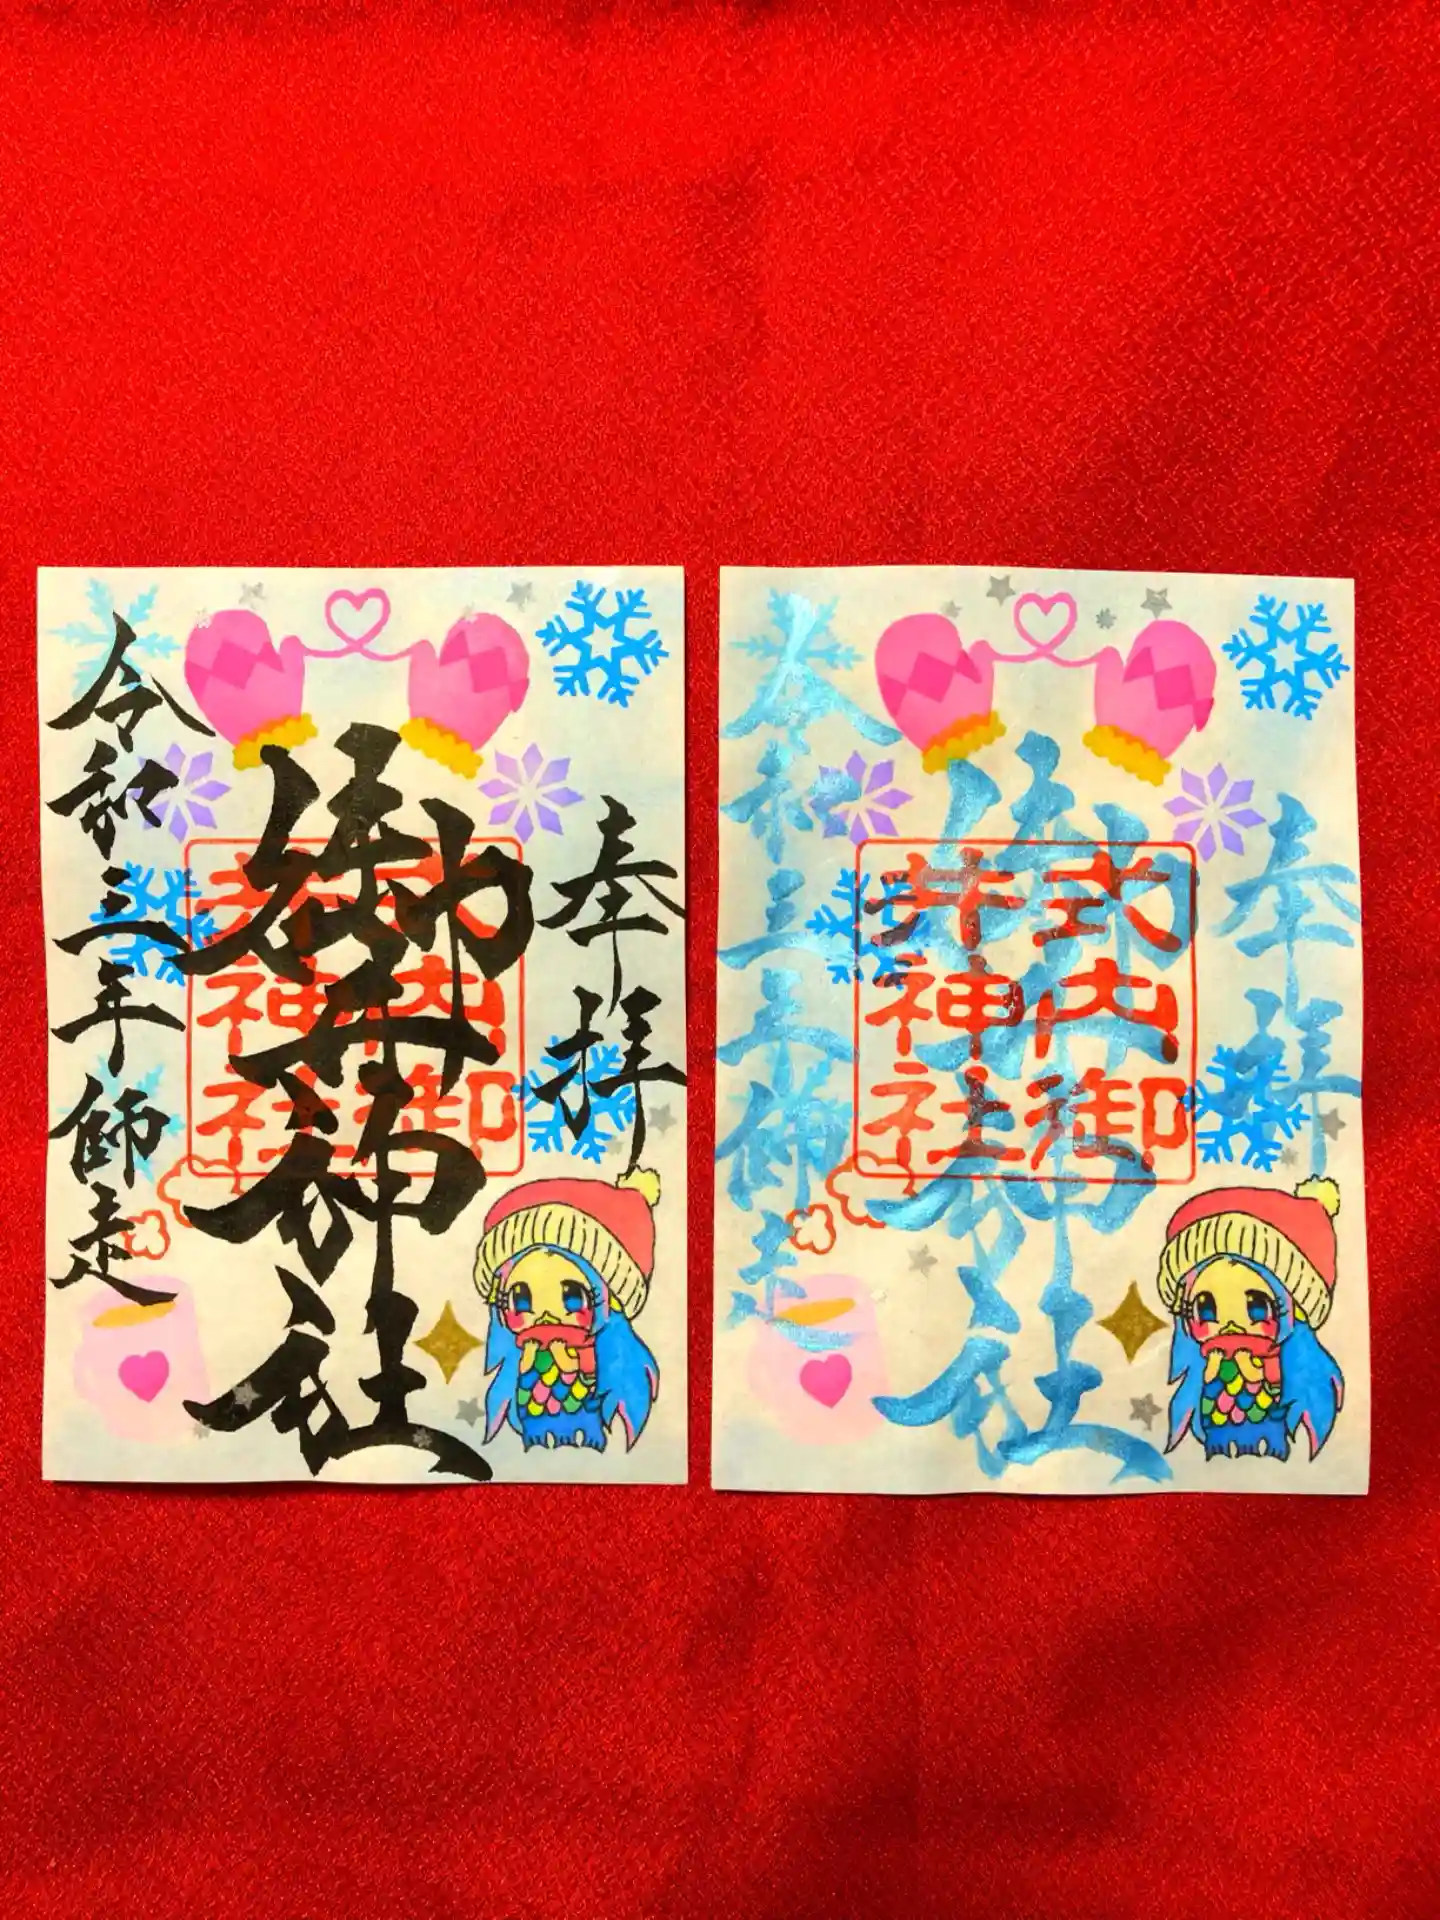 奉拝
式内御
井神社
御井神社
令和三年師走
奉拝
式内御
井神社
御井神社
令和三年師走